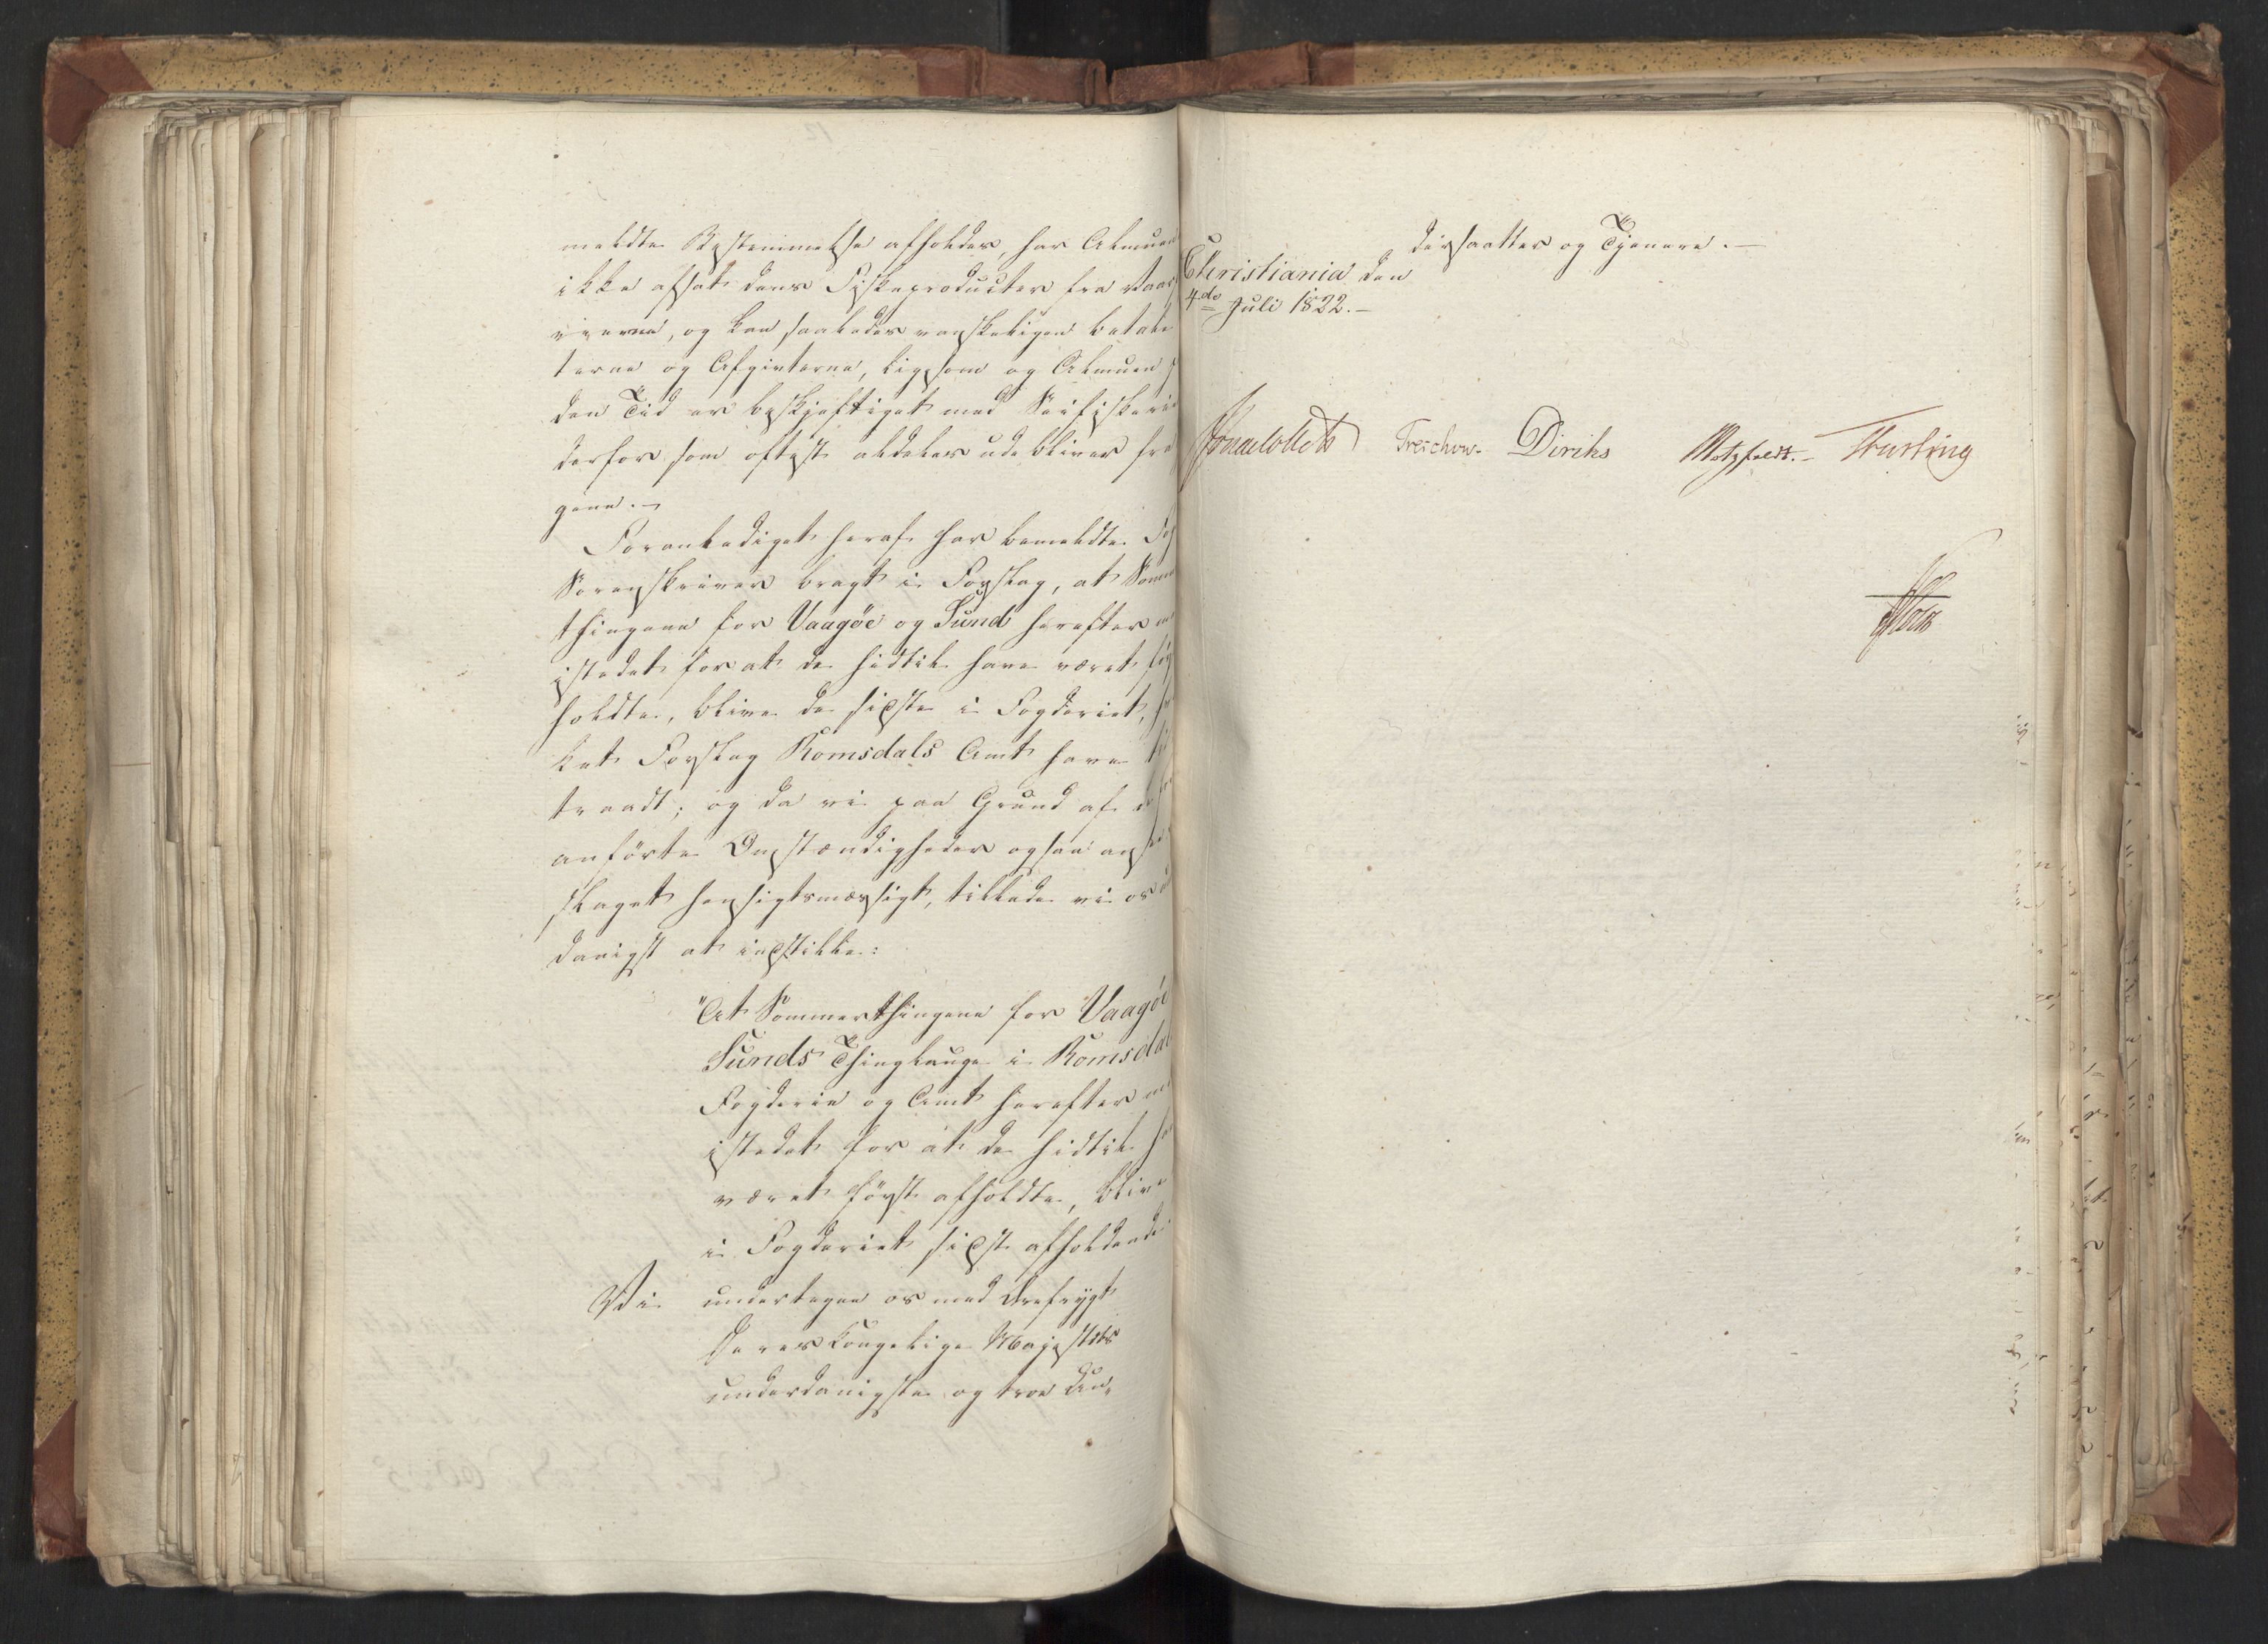 meldte Bestemmelse afholdes, har Almuen
ikke afsat deres Fiskeproducter fra Vaar
og kan saaledes vanskeligen betale
terne og Afgivterne, ligesom og Almuen
den Tid er beskjæftiget med Seifiskeri
derfor som oftest aldeles udebliver fra
gene. —
Foranlediget heraf har bemeldte
Sorenskriver bragt i Forslag, at Somm
thingene for Vaagöe og Sund herefter
istedet for at de hidtil have været
holdte, blive de sidste i Fogderiet,
ket Forslag Romsdals Amt have
traadt; og da vi paa Grund af
anförte Omstændigheder ogsaa ansee
slaget hensigtsmæssigt, tillade vi os
danigst at indstille:
"At Sommerthingene for Vaagöe
Sunds Thinglauge i Romsdals
Fogderie og Amt herefter
istedet for at de hidtil
været först afholdte, blive
i Fogderiet sidst afholdende
Vi undertegne os med Ærefrygt
Deres Kongelige Majestæts
underdanigste og troe Un-
dersaatter og Tjenere. —
Christiania den
4de Juli 1822. —
Treschow. Diriks Motzfeldt. —